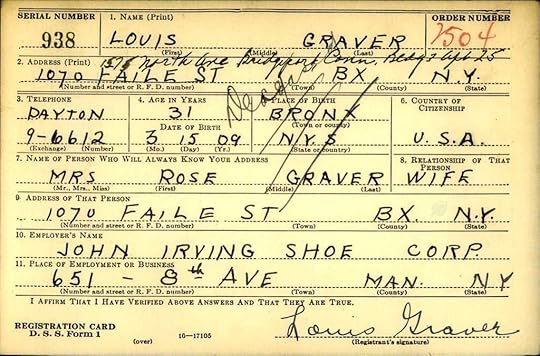 SERIAL NUMBER 1. NAME (Print) ORDER NUMBER
938 LOUIS GRAVER
(First) (Middle) (Last)
2. ADDRESS (Print) North Ave Bridgeport Conn.
1070 FAILE ST BX. N.Y.
(Number and street or R. F. D. number) (Town) (County) (State)
3. TELEPHONE 4. AGE IN YEARS 5. PLACE OF BIRTH 6. COUNTRY OF CITIZENSHIP
DAYTON 31 BRONX
(Town or county)
DATE OF BIRTH
9-6612 3 15 09 N.Y.S U.S.A.
(Exchange) (Number) (Mo.) (Day) (Yr.) (State or country)
7. NAME OF PERSON WHO WILL ALWAYS KNOW YOUR ADDRESS 8. RELATIONSHIP OF THAT PERSON
MRS ROSE GRAVER WIFE
(Mr., Mrs., Miss) (First) (Middle) (Last)
9. ADDRESS OF THAT PERSON
1070 FAILE ST BX. N.Y.
(Number and street or R. F. D. number) (Town) (County) (State)
10. EMPLOYER'S NAME
JOHN IRVING SHOE CORP.
11. PLACE OF EMPLOYMENT OR BUSINESS
651 - 8th AVE MAN. NY
(Number and street or R. F. D. number) (Town) (County) (State)
I AFFIRM THAT I HAVE VERIFIED ABOVE ANSWERS AND THAT THEY ARE TRUE.
REGISTRATION CARD
D. S. S. Form 1 (over) 16-17105
Louis Graver
(Registrant's signature)